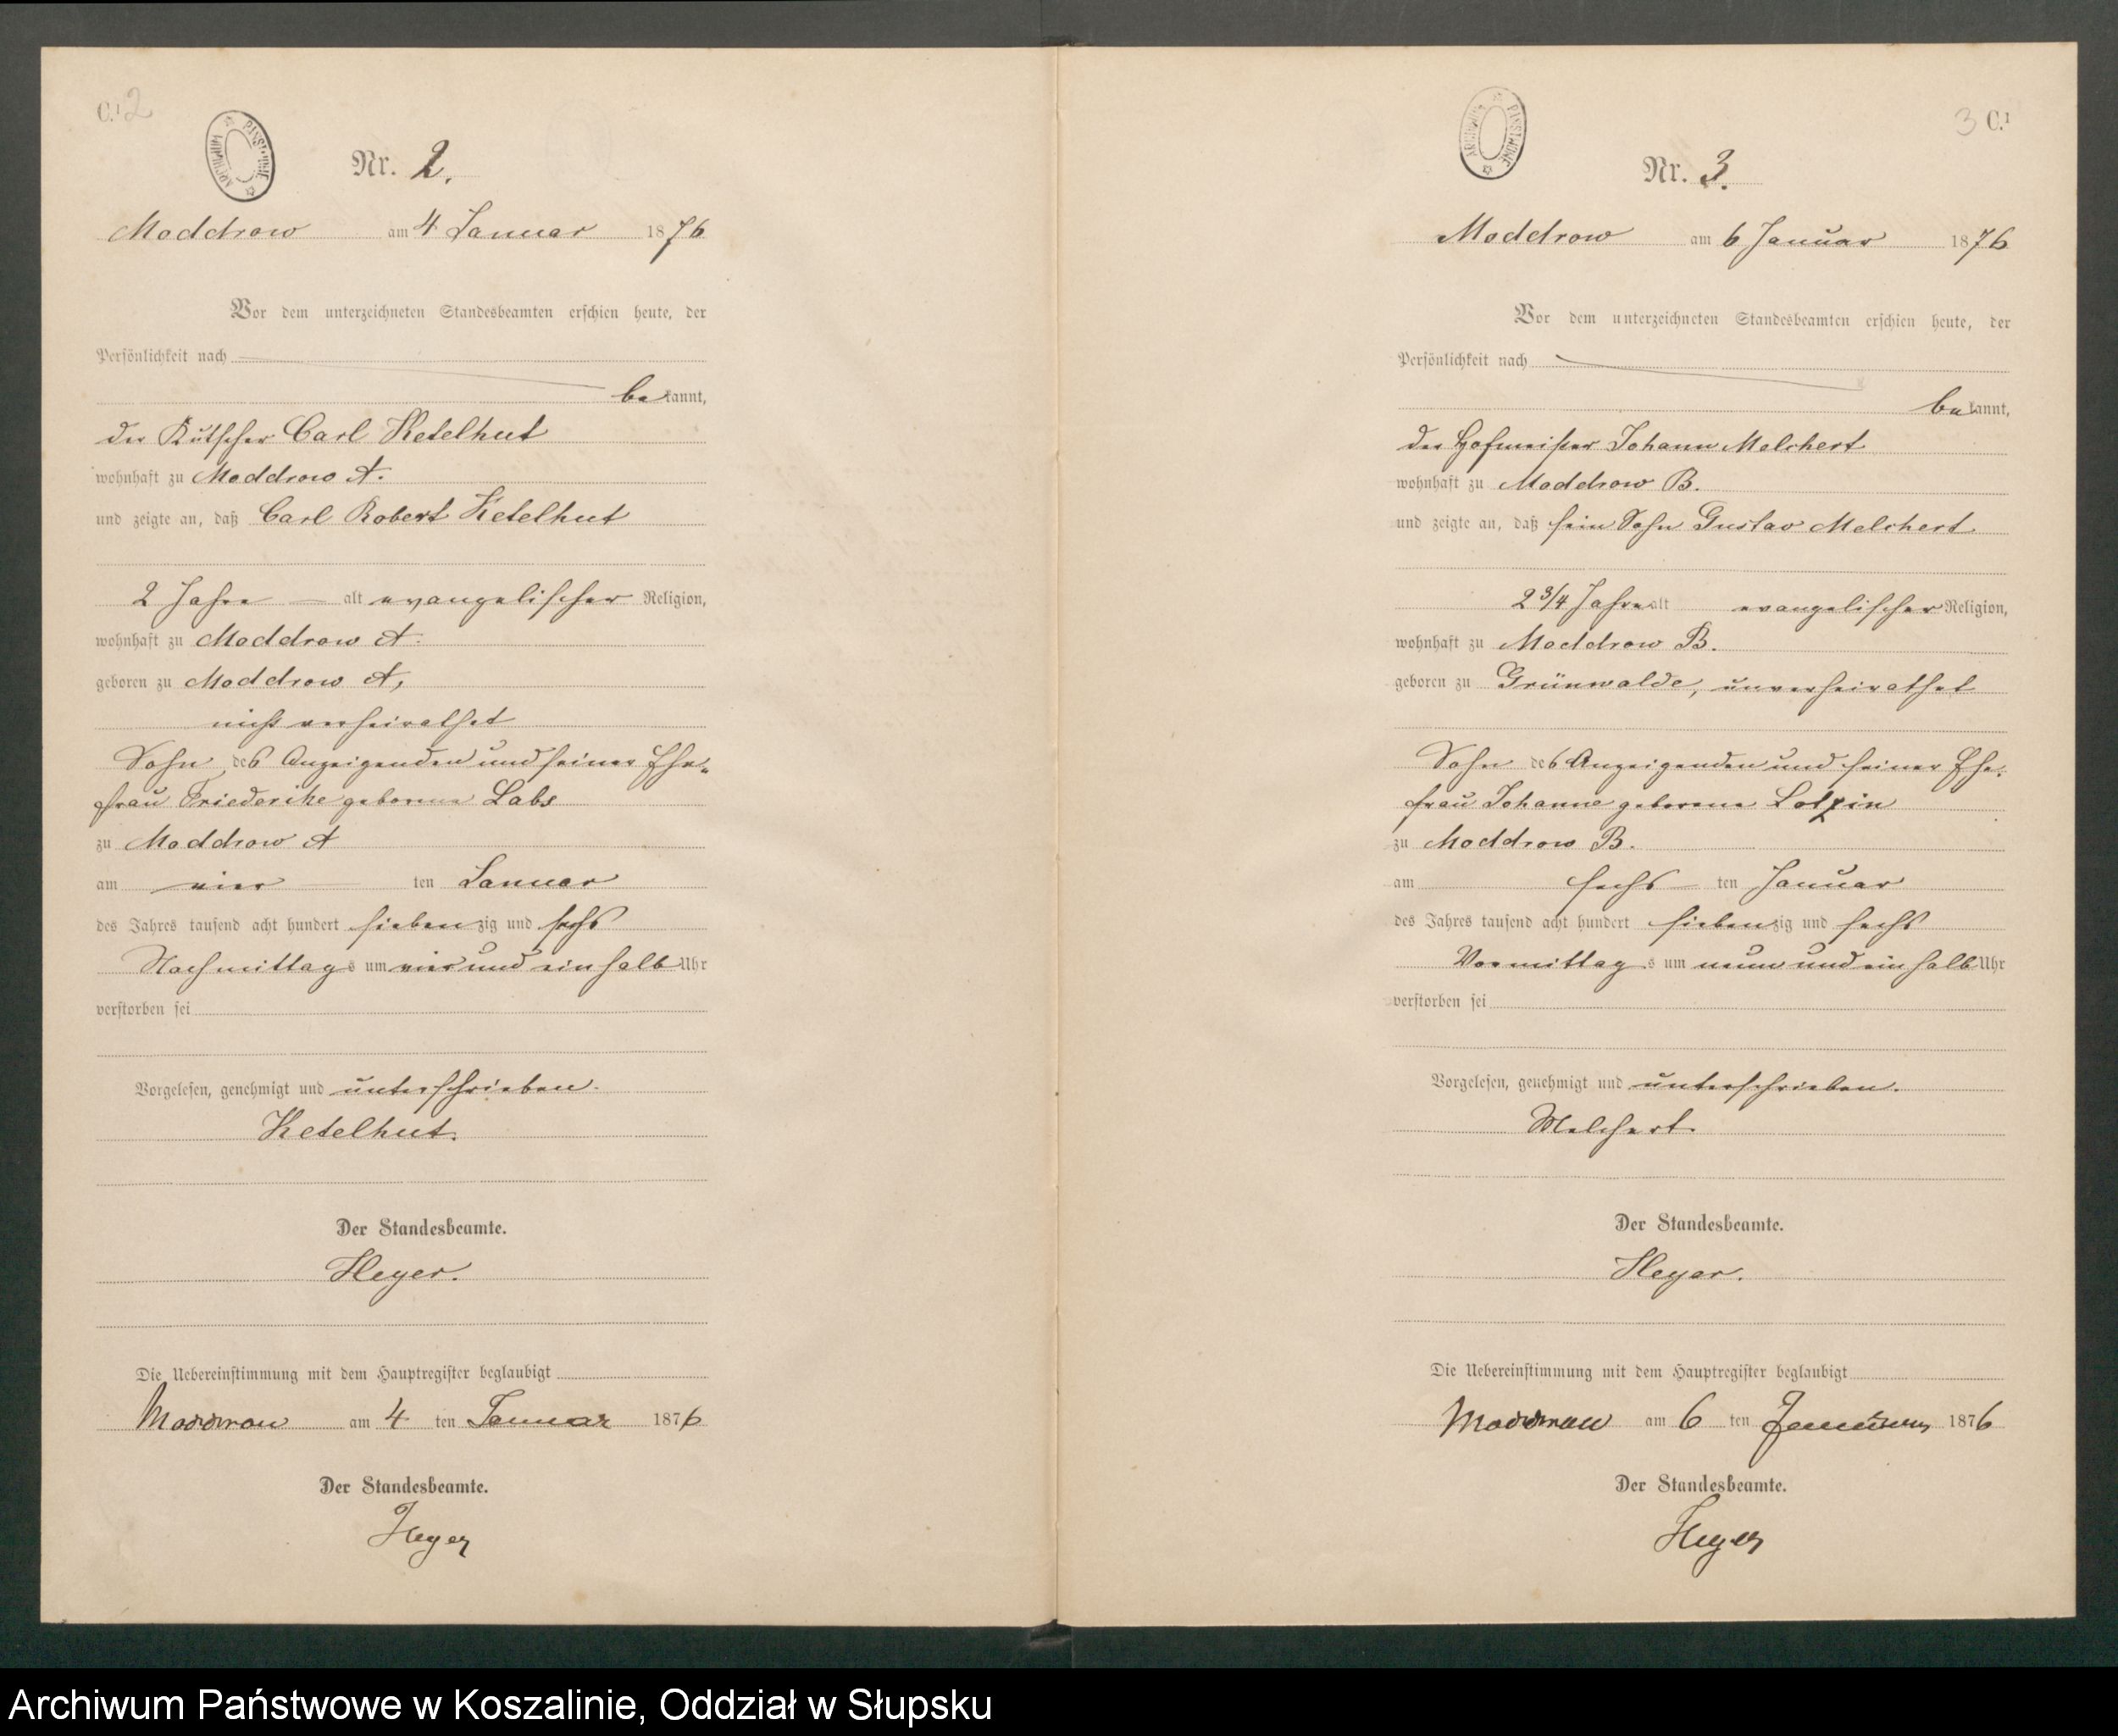 C.1 2
ARCHIWUM PAŃSTWOWE
Nr. 2.
Moddrow am 4 Januar 1876
Vor dem unterzeichneten Standesbeamten erschien heute, der
Persönlichkeit nach
bekannt,
der Kutscher Carl Ketelhut
wohnhaft zu Moddrow A.
und zeigte an, daß Carl Robert Ketelhut
2 Jahre — alt evangelischer Religion,
wohnhaft zu Moddrow A.
geboren zu Moddrow A,
nicht verheirathet
Sohn des Anzeigenden und seiner Ehe„
frau Friedericke geborene Labs
zu Moddrow A
am vier — ten Januar
des Jahres tausend acht hundert siebenzig und sechs
Nachmittags um vier und ein halb Uhr
verstorben sei
Vorgelesen, genehmigt und unterschrieben.
Ketelhut.
Der Standesbeamte.
Heyer.
Die Uebereinstimmung mit dem Hauptregister beglaubigt
Moddrow am 4 ten Januar 1876
Der Standesbeamte.
Heyer
3 C.1
ARCHIWUM PAŃSTWOWE
Nr. 3.
Moddrow am 6 Januar 1876
Vor dem unterzeichneten Standesbeamten erschien heute, der
Persönlichkeit nach
bekannt,
der Hofmeister Johann Melchert
wohnhaft zu Moddrow B.
und zeigte an, daß sein Sohn Gustav Melchert
2 3/4 Jahre alt evangelischer Religion,
wohnhaft zu Moddrow B.
geboren zu Grünwalde, unverheirathet
Sohn des Anzeigenden und seiner Ehe„
frau Johanne geborene Lotzin
zu Moddrow B.
am sechs — ten Januar
des Jahres tausend acht hundert siebenzig und sechs
Vormittags um neun und ein halb Uhr
verstorben sei
Vorgelesen, genehmigt und unterschrieben.
Melchert.
Der Standesbeamte.
Heyer.
Die Uebereinstimmung mit dem Hauptregister beglaubigt
Moddrow am 6 ten Januar 1876
Der Standesbeamte.
Heyer
Archiwum Państwowe w Koszalinie, Oddział w Słupsku